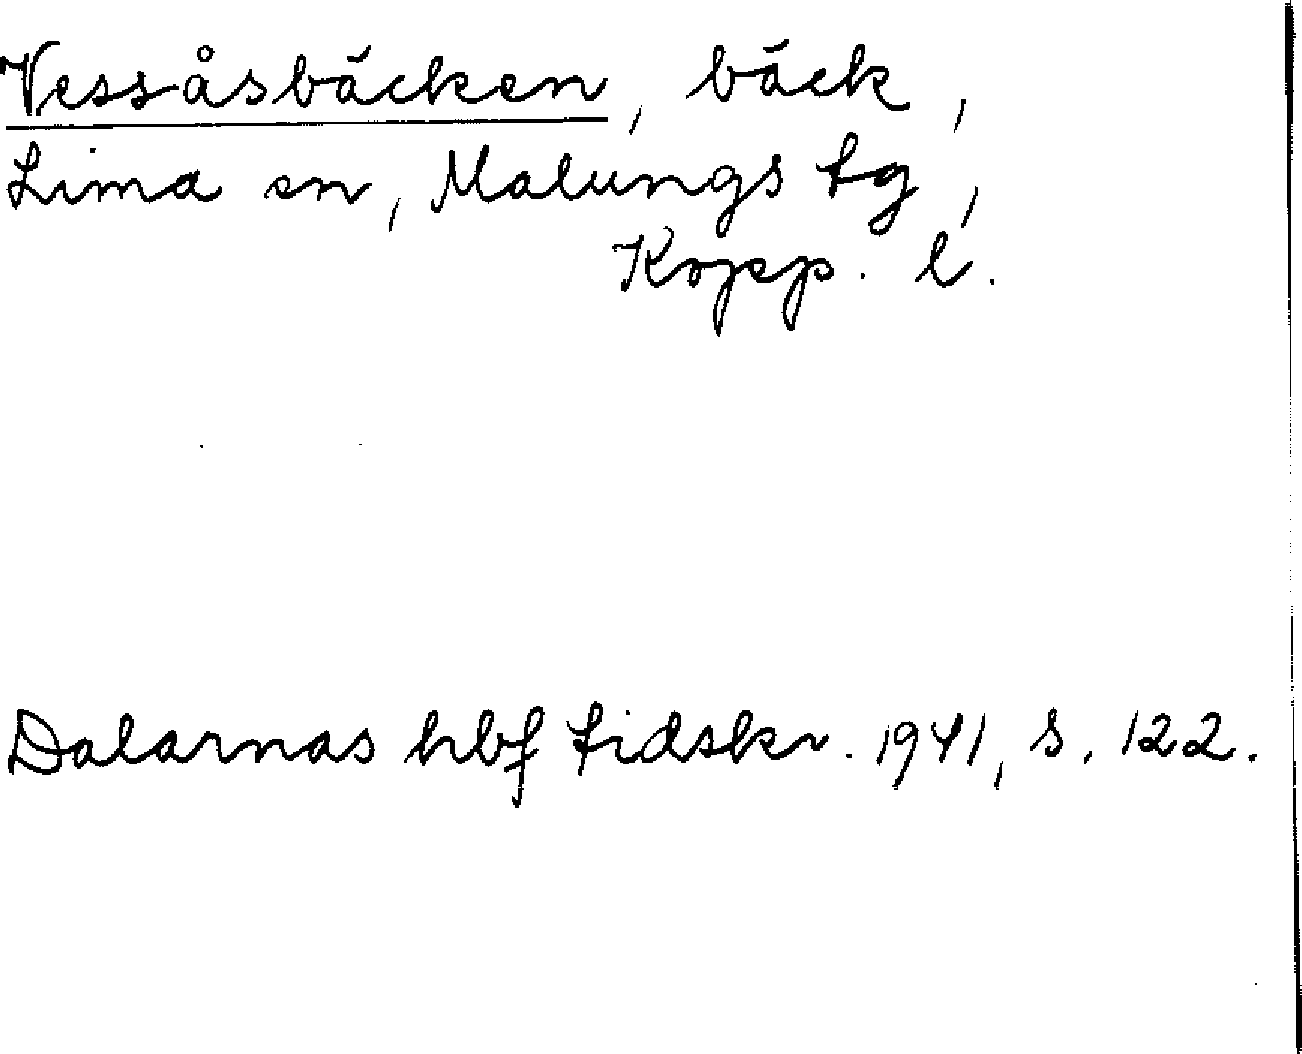 Vessåsbäcken, bäck,
Lima sn, Malungs tg,
Kopp. l.
Dalarnas hbf tidskr. 1941, s. 122.